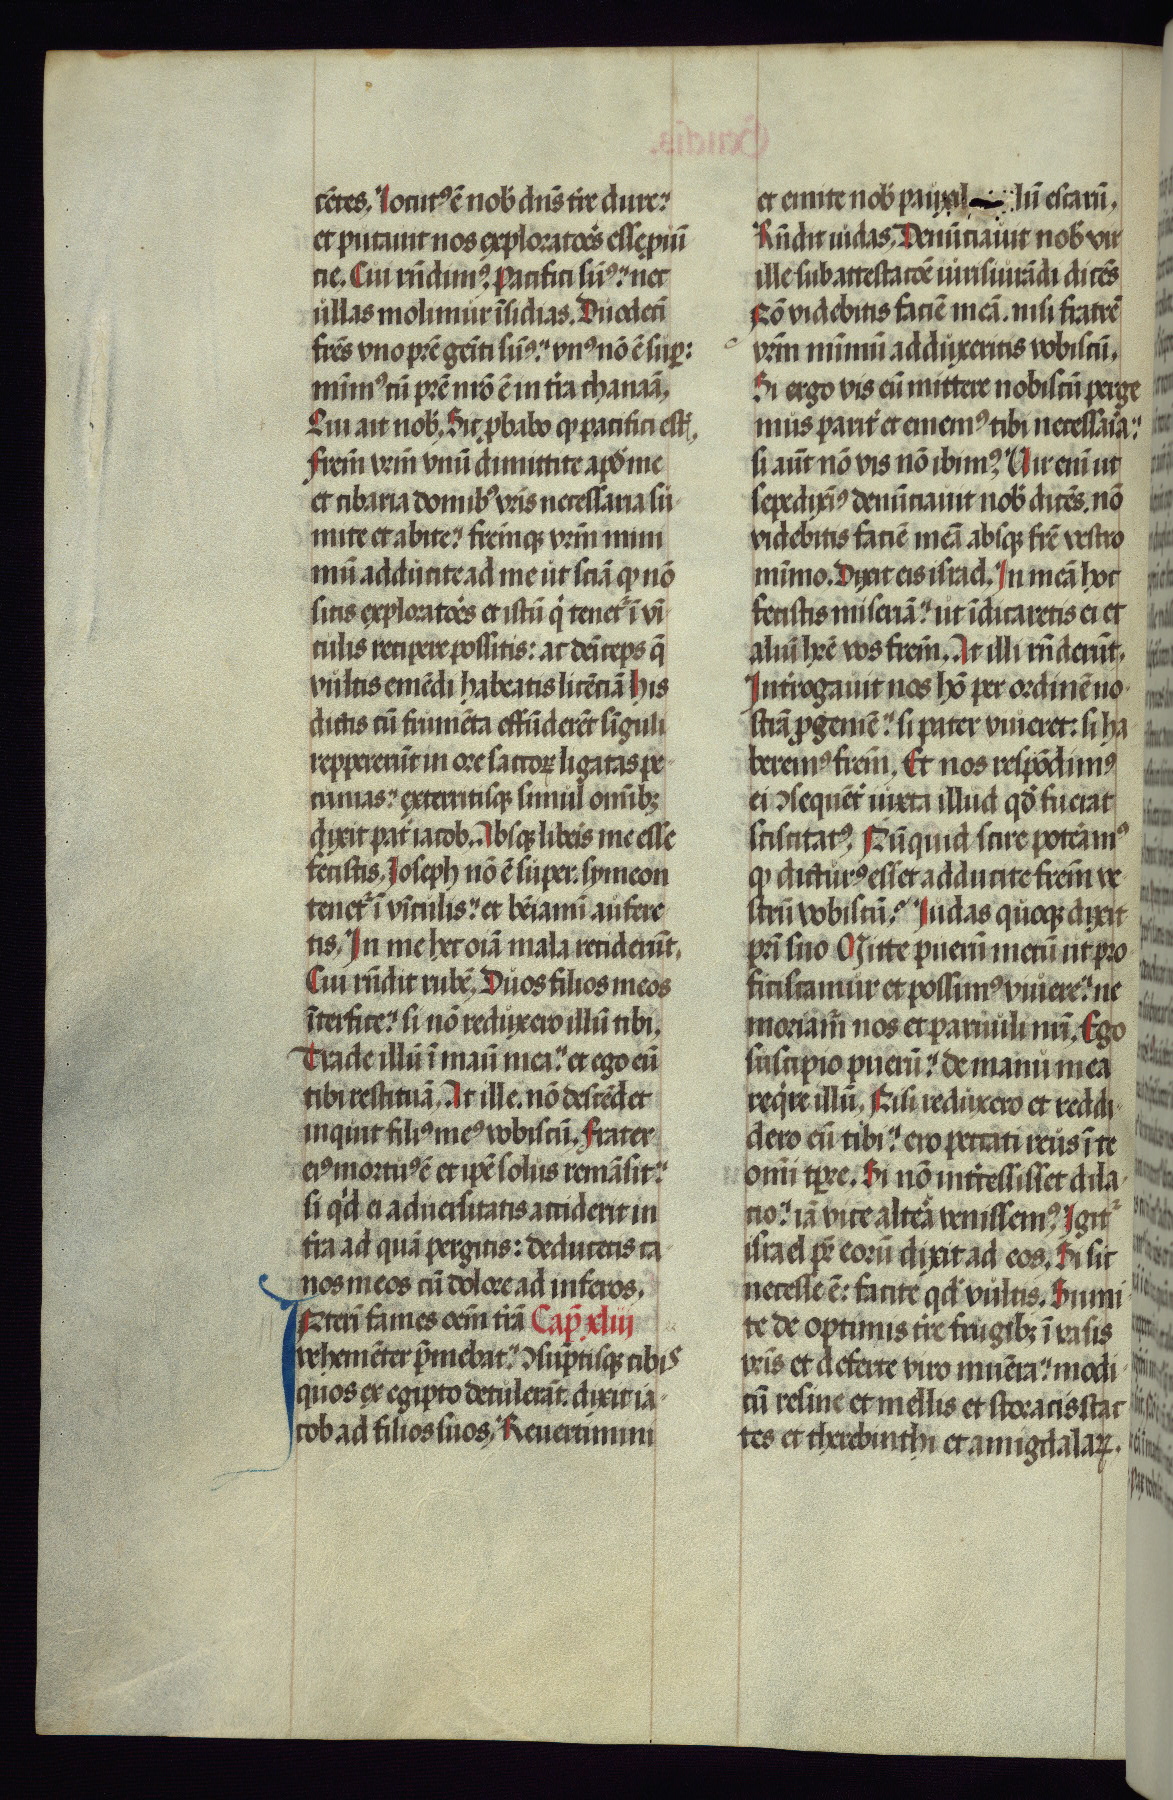 cētes. Locutꝰ ē nob̄ dn̄s tr̄e dure:
et putauit nos exploratoēs esse ꝓuī
cie. Cui rn̄dimꝰ. Pacifici sūꝰ: nec
ullas molimur īsidias. Duodecī
fr̄es vno pr̄e geīti sūꝰ: vnꝰ nō ē sup̄:
mīmꝰ cū pr̄e nr̄o ē in tr̄a chanaā.
Qui ait nob̄. Sic ꝓbabo ꝙ pacifici est̄.
Frēm vr̄m vnū dimittite apd̄ me
et cibaria domibꝰ vr̄is necessaria su
mite et abite: frēmqꝫ vr̄m mini
mū adducite ad me ut sciā ꝙ nō
sitis exploratoēs et istū q̄ tenet̄ ī vī
culis recipere possitis: ac deīceps q̄
vultis emēdi habeatis licēciā his
dictis cū frumēta effūderēt sīguli
reppererūt in ore saccoꝝ ligatas pe
cunias: exterritisqꝫ simul omībꝫ
dixit pat̄ iacob. Absqꝫ libeīs me esse
fecistis. Joseph nō ē super. symeon
tenet̄ ī vīculis: et beīamī aufere
tis. In me hec oīā mala reciderūt.
Cui rn̄dit rubē. Duos filios meos
īterfice: si nō reduxero illū tibi.
Trade illū ī manū mea: et ego eū
tibi restituā. At ille. nō descēdet
inquit filiꝰ meꝰ vobiscū. Frater
eiꝰ mortuꝰ ē et ip̄e solus remāsit:
si qd̄ ei aduersitatis acciderit in
tr̄a ad quā pergitis: deducetis ca
nos meos cū dolore ad inferos.
Interī fames oēm tr̄ā Cap̄ xliij
vehemēter p̄mebat: ↄsūptisqꝫ cibis
quos ex egipto detulerāt. dixit ia
cob ad filios suos. Reuertimini
et emite nob̄ pauxil lū escarū.
Rn̄dit iudas. Denūciauit nob̄ vir
ille sub attestatōe iurisiurādi dicēs
Nō videbitis faciē meā. nisi fratrē
vr̄m mīmū adduxeritis vobiscū.
Si ergo vis eū mittere nobiscū perge
mus parit̄ et ememꝰ tibi necessaīa:
si aūt nō vis nō ibimꝰ. Vir enī ut
sepe diximꝰ denūciauit nob̄ dicēs. nō
videbitis faciē meā absqꝫ fr̄e vestro
mīmo. Dixit eis israel. In meā hoc
fecistis miseriā: ut īdicaretis ei et
aliū hr̄e vos frēm. At illi rn̄derūt.
Introgauit nos hō per ordinē no
strā ꝓgeniē: si pater viueret: si ha
beremꝰ frēm. Et nos respōdimꝰ
ei ↄsequēt̄ iuxta illud qd̄ fuerat
sciscitatꝰ. Nūquid scire poteāmꝰ
ꝙ dicturꝰ esset adducite frēm ve
strū vobiscū: Judas quoqꝫ dixit
pr̄i suo Mitte puerū mecū ut pro
ficiscamur et possimꝰ viuere: ne
moriam̄ nos et paruuli nr̄i. Ego
suscipio puerū: de manu mea
req̄re illū. Nisi reduxero et reddi
dero eū tibi: ero peccati reus ī te
omī tp̄re. Si nō int̄cessisset dila
cio: iā vice alteā venissemꝰ. Igit̄
israel pr̄ eorū dixit ad eos. Si sic
necesse ē: facite qd̄ vultis. Sumi
te de optimis tr̄e frugibꝫ ī vasis
vr̄is et deferte viro munēra: modi
cū resine et mellis et storacis stac
tes et therebinthi et amigdalaꝝ.